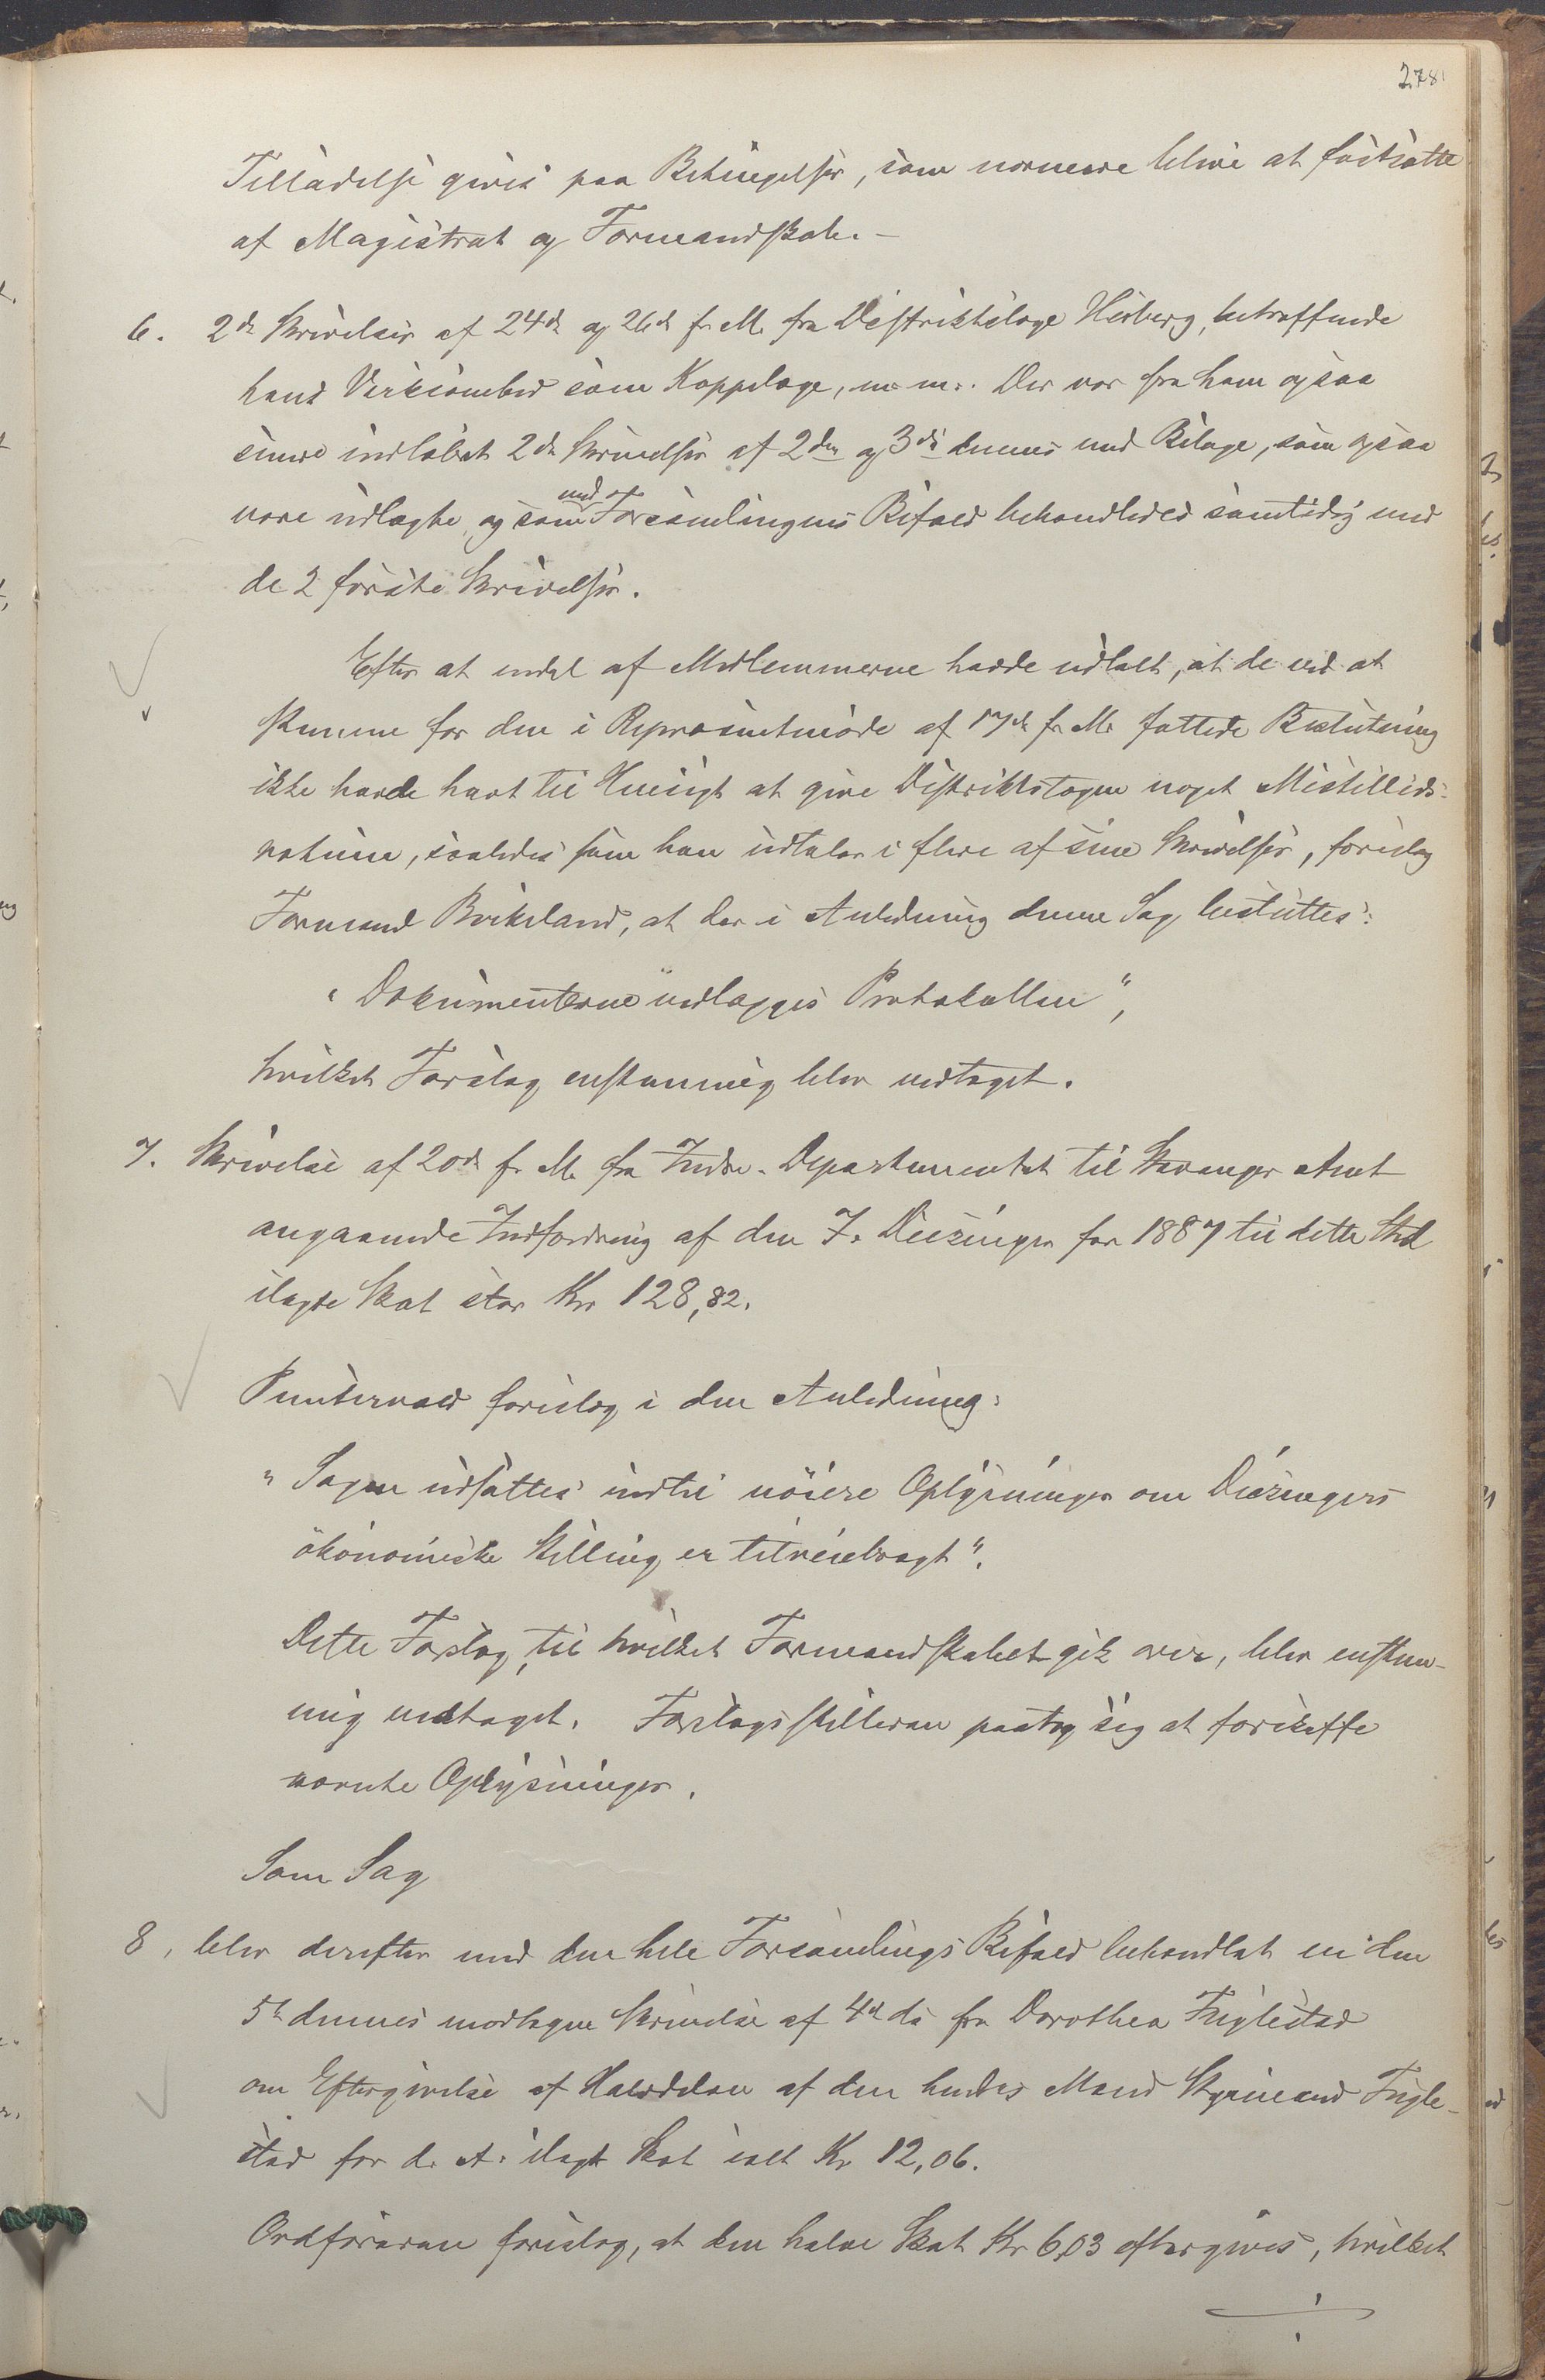 278
Tilladelse gives paa Betingelser, som nærmere blive at fastsætte
af Magistrat og Formandskab. –
6. 2de Skrivelser af 24de og 26de f. M. fra Distriktslæge Hiorth, betræffende
hans Virksomhed som Koppelæge, m. m. Der var fra ham ogsaa
senere indløbet 2de Skrivelser af 2den og 3die dennes med Bilage, som ogsaa
vare udlagte, og som med Forsamlingens Bifald behandledes samtidig med
de 2 første Skrivelser.
Efter at endel af Medlemmerne havde udtalt, at de ved at
stemme for den i Repræsentmøde af 17de f. M. fattede Beslutning
ikke havde havt til Hensigt at give Distriktslægen noget Mistillids-
votum, saaledes som han udtaler i flere af sine Skrivelser, foreslog
Formand Birkeland, at der i Anledning denne Sag besluttes:
"Dokumenterne vedlægges Protokollen",
hvilket Forslag enstemmig blev vedtaget.
7. Skrivelse af 20de f. M. fra Indre-Departementet til Stavanger Amt
angaaende Indfordring af den F. Diesinger for 1887 til dette Sted
ilagte Skat stor Kr 128,82.
Puntervold foreslog i den Anledning:
"Sagen udsættes indtil nöiere Oplysninger om Diesingers
ökonomiske Stilling er tilveiebragt".
Dette Forslag, til hvilket Formandskabet gik over, blev enstem-
mig vedtaget. Forslagsstilleren paatog sig at forskaffe
nævnte Oplysninger.
Som Sag
8, blev derefter med den hele Forsamlings Bifald behandlet en den
5te dennes modtagen Skrivelse af 4de ds fra Dorothea Fuglestad
om Eftergivelse af Halvdelen af den hendes Mand Styrmand Fugle-
stad for d. A. ilagte Skat ialt Kr 12,06.
Ordføreren foreslog, at den halve Skat Kr 6,03 eftergives, hvilket